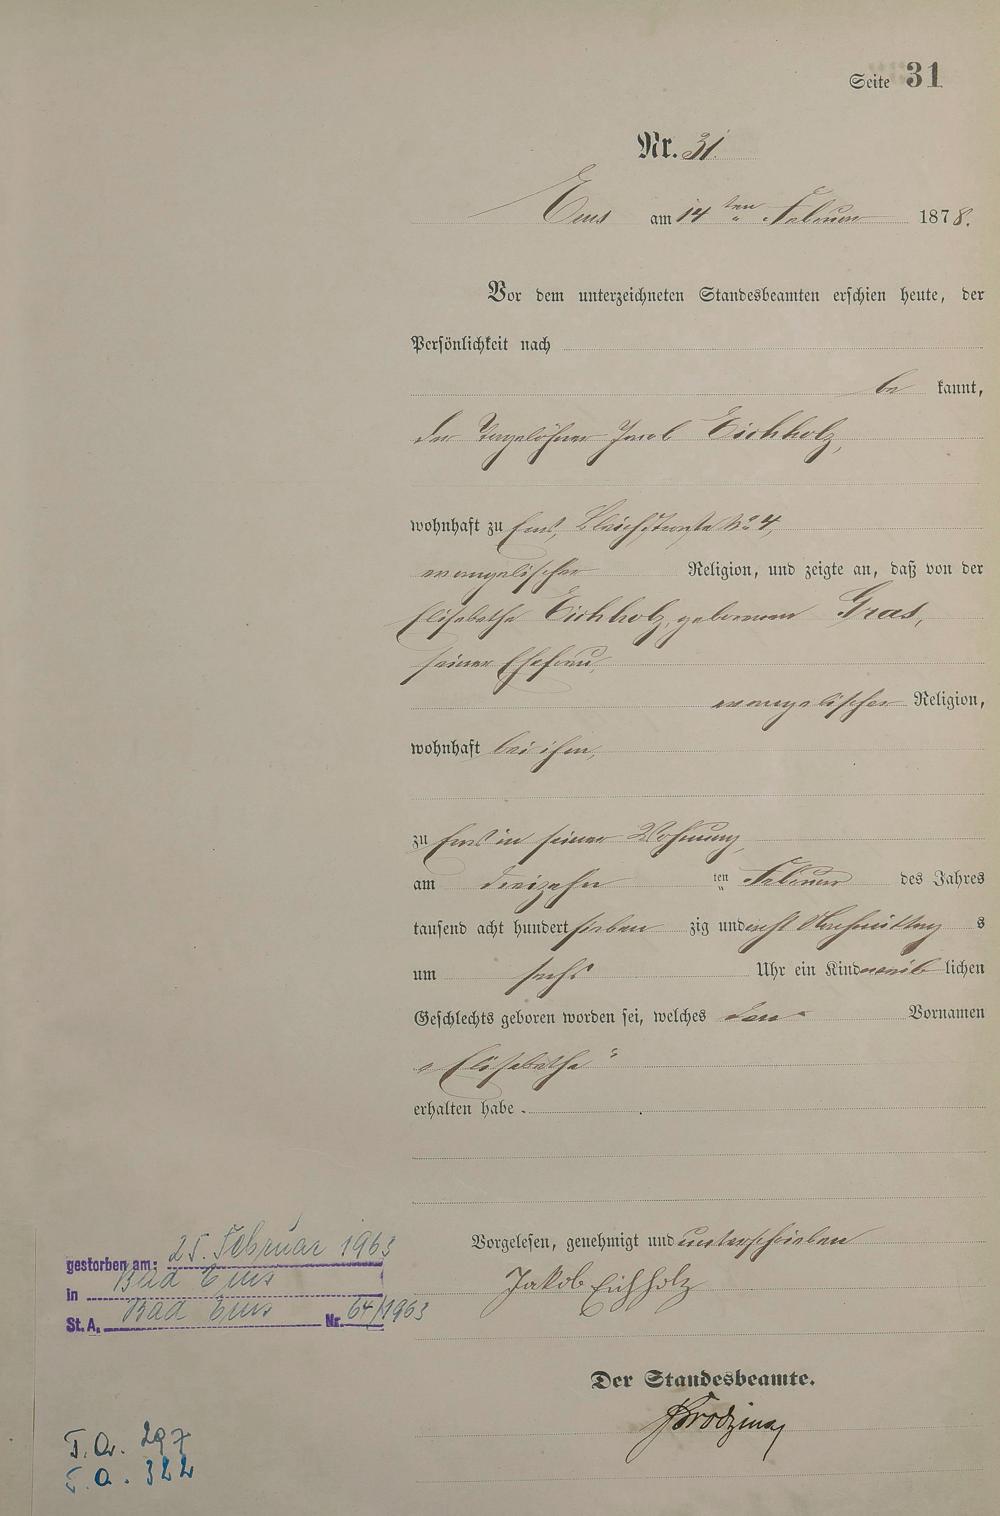 Seite 31
Nr. 31.
Ems am 14 ten Februar 1878.
Vor dem unterzeichneten Standesbeamten erschien heute, der
Persönlichkeit nach
be kannt,
der Tagelöhner Jacob Eichholz,
wohnhaft zu Ems, Bleichstraße No. 4,
evangelischer Religion, und zeigte an, daß von der
Elisabetha Eichholz, geborenen Gras,
seiner Ehefrau,
evangelischer Religion,
wohnhaft bei ihm,
zu Ems in seiner Wohnung,
am dreizehn ten Februar des Jahres
tausend acht hundert sieben zig und acht Nachmittag s
um sechs Uhr ein Kind weib lichen
Geschlechts geboren worden sei, welches den Vornamen
„Elisabetha“
erhalten habe.
Vorgelesen, genehmigt und unterschrieben
Jakob Eichholz
Der Standesbeamte.
gestorben am: 25. Februar 1963
in Bad Ems
St. A. Bad Ems Nr. 64/1963
T. Ar. 297
T. a. 322